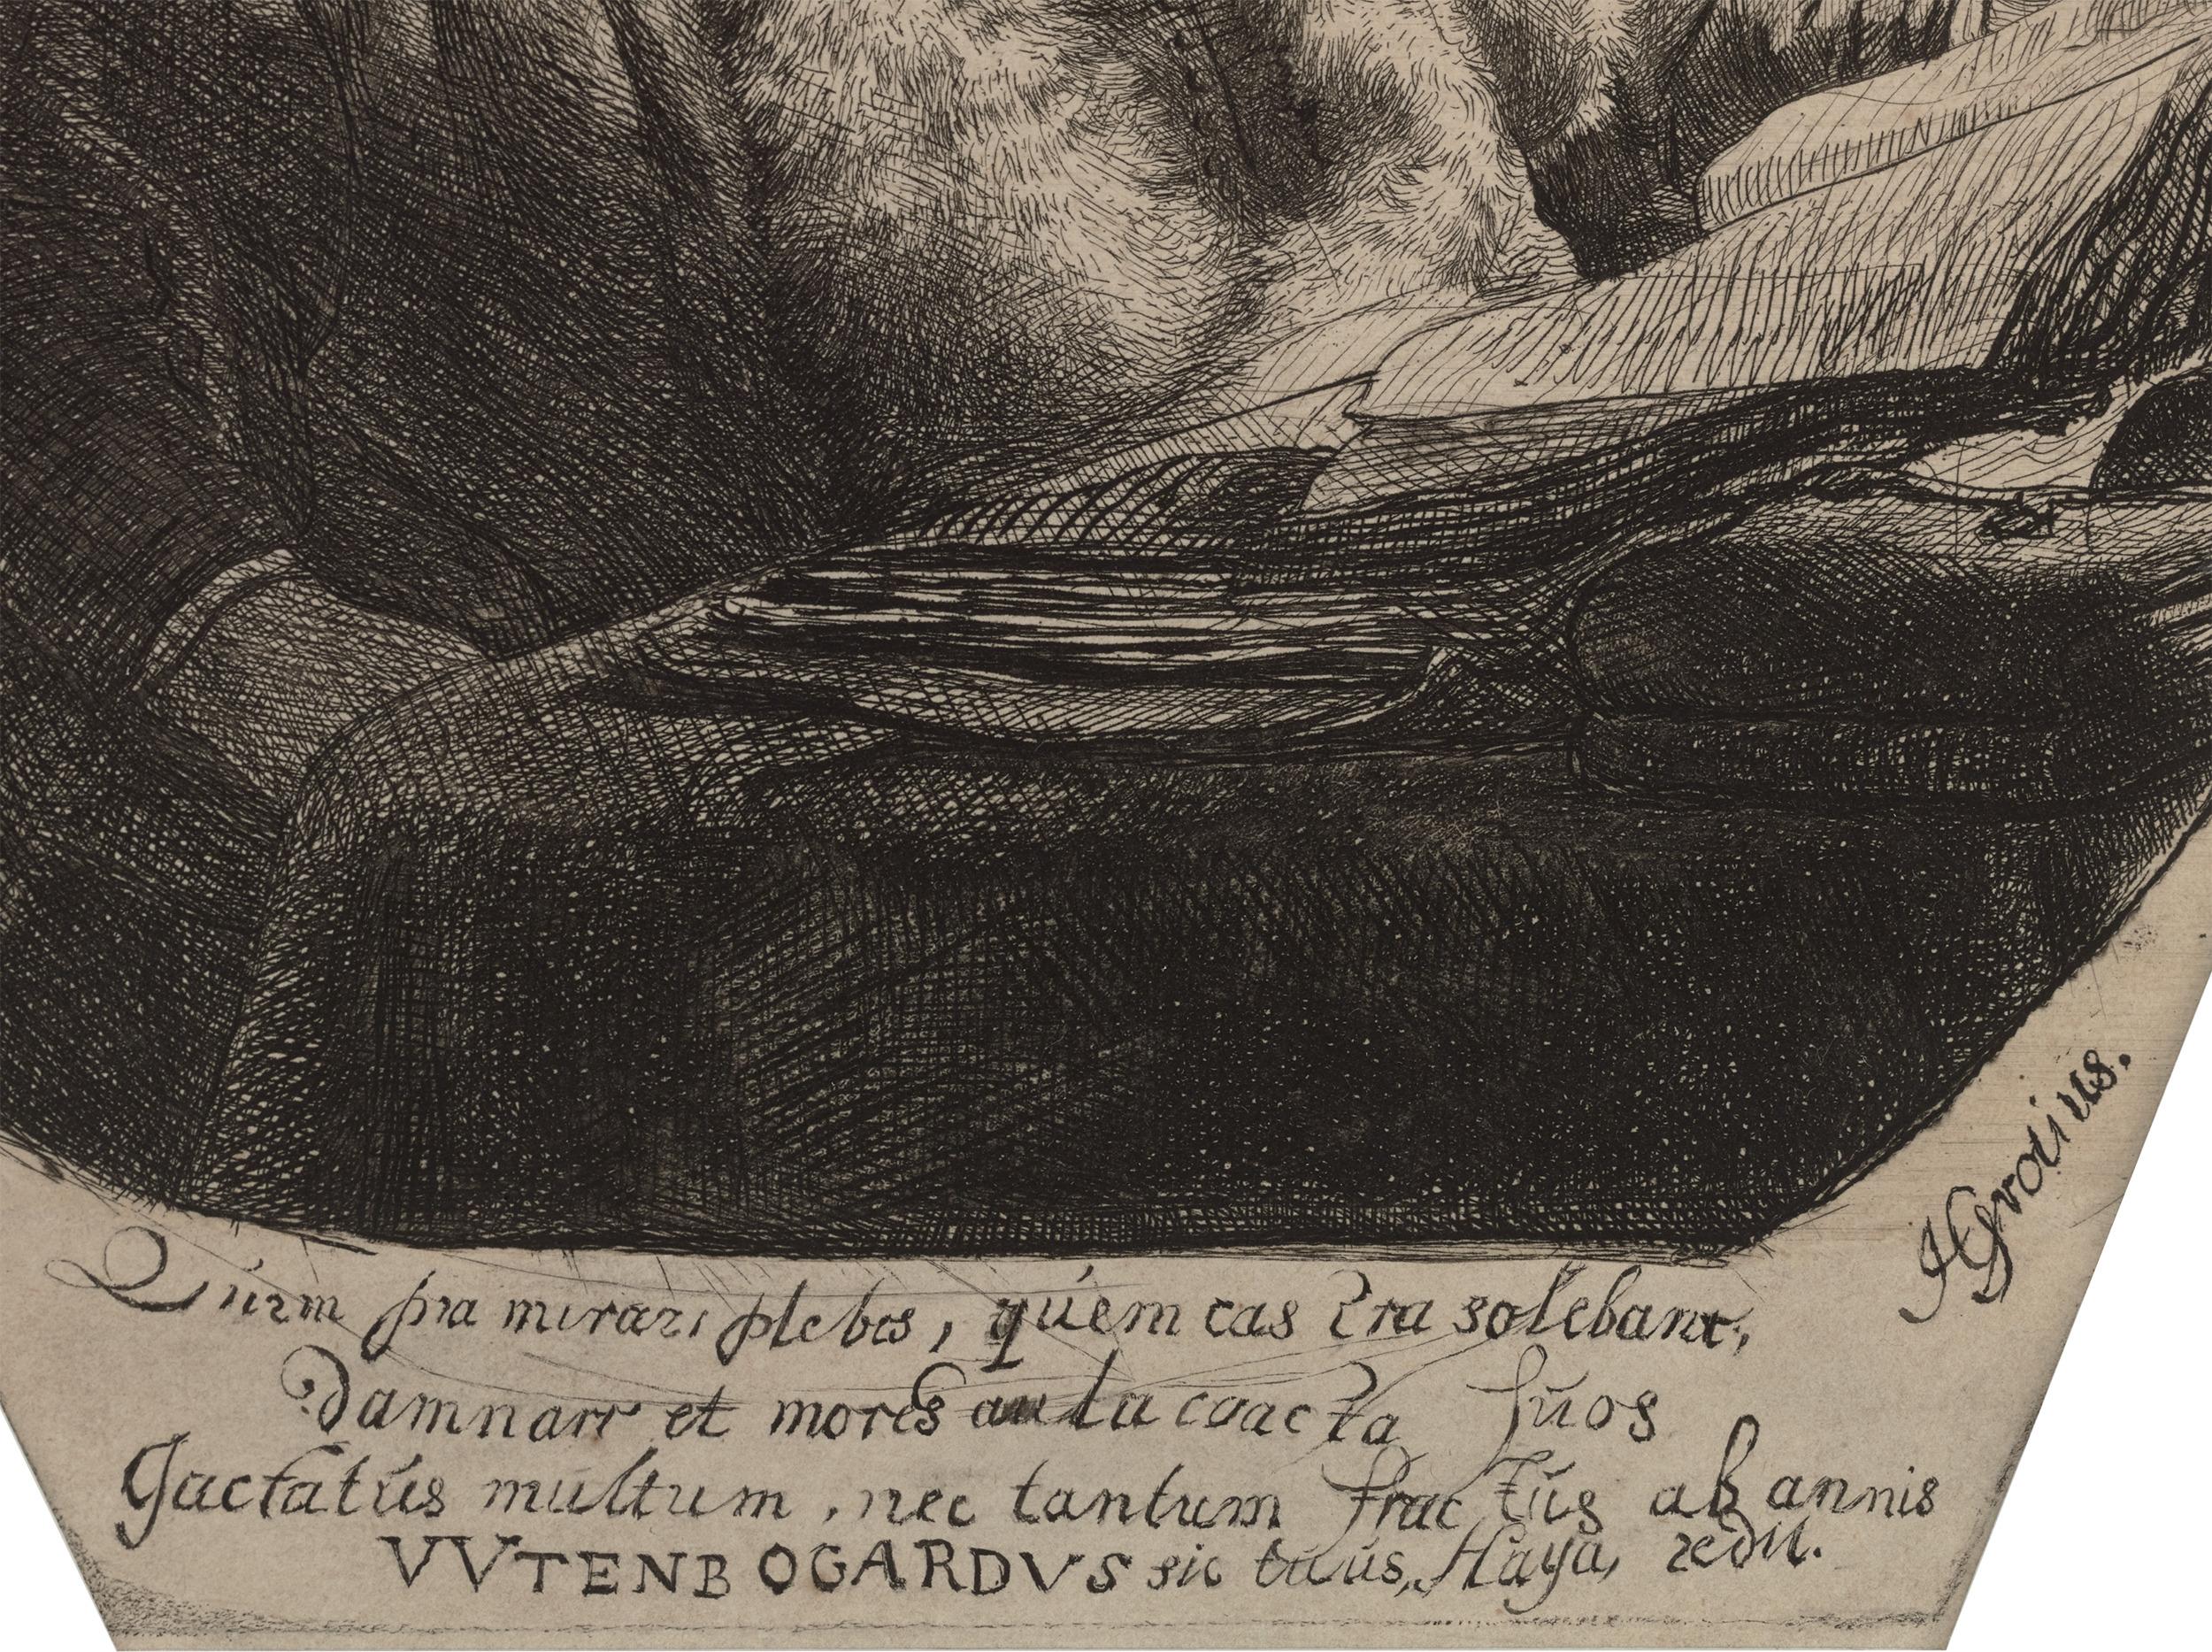 Quem pia mirari plebes, quem castra solebant,
Damnare et mores aula coacta suos
Jactatus multum, nec tantum fractus ab annis
VVTENBOGARDVS sic tuus, Haga, redit.
HGrotius.